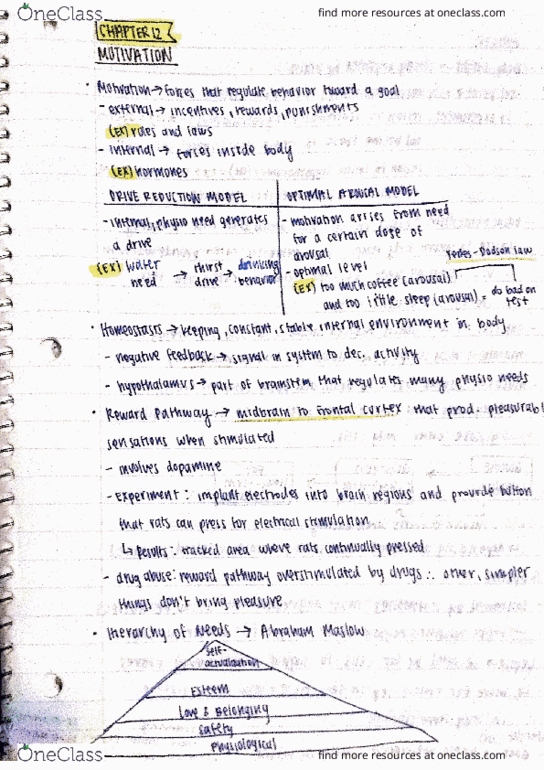 OneClass
find more resources at oneclass.com
CHAPTER 12
MOTIVATION
• Motivation → forces that regulate behavior toward a goal
- external → incentives, rewards, punishments
(EX) rules and laws
- internal → forces inside body
(EX) hormones
DRIVE REDUCTION MODEL
- internal, physio need generates
a drive
(EX) water need → thirst drive → drinking behavior
OPTIMAL AROUSAL MODEL
- motivation arises from need
for a certain dose of
arousal
- optimal level
Yerkes-Dodson law
(EX) too much coffee (arousal)
and too little sleep (arousal) = do bad on test
• Homeostasis → keeping, constant, stable internal environment in body
- negative feedback → signal in system to dec. activity
- hypothalamus → part of brainstem that regulates many physio needs
• Reward Pathway → midbrain to frontal cortex that prod. pleasurabl
sensations when stimulated
- involves dopamine
- experiment: implant electrodes into brain regions and provide button
that rats can press for electrical stimulation
↳ Results: tracked area where rats continually pressed
- drug abuse: reward pathway overstimulated by drugs ∴ other, simpler
things don't bring pleasure
• Hierarchy of Needs → Abraham Maslow
self-
actualization
Esteem
Love & Belonging
safety
physiological
OneClass
find more resources at oneclass.com